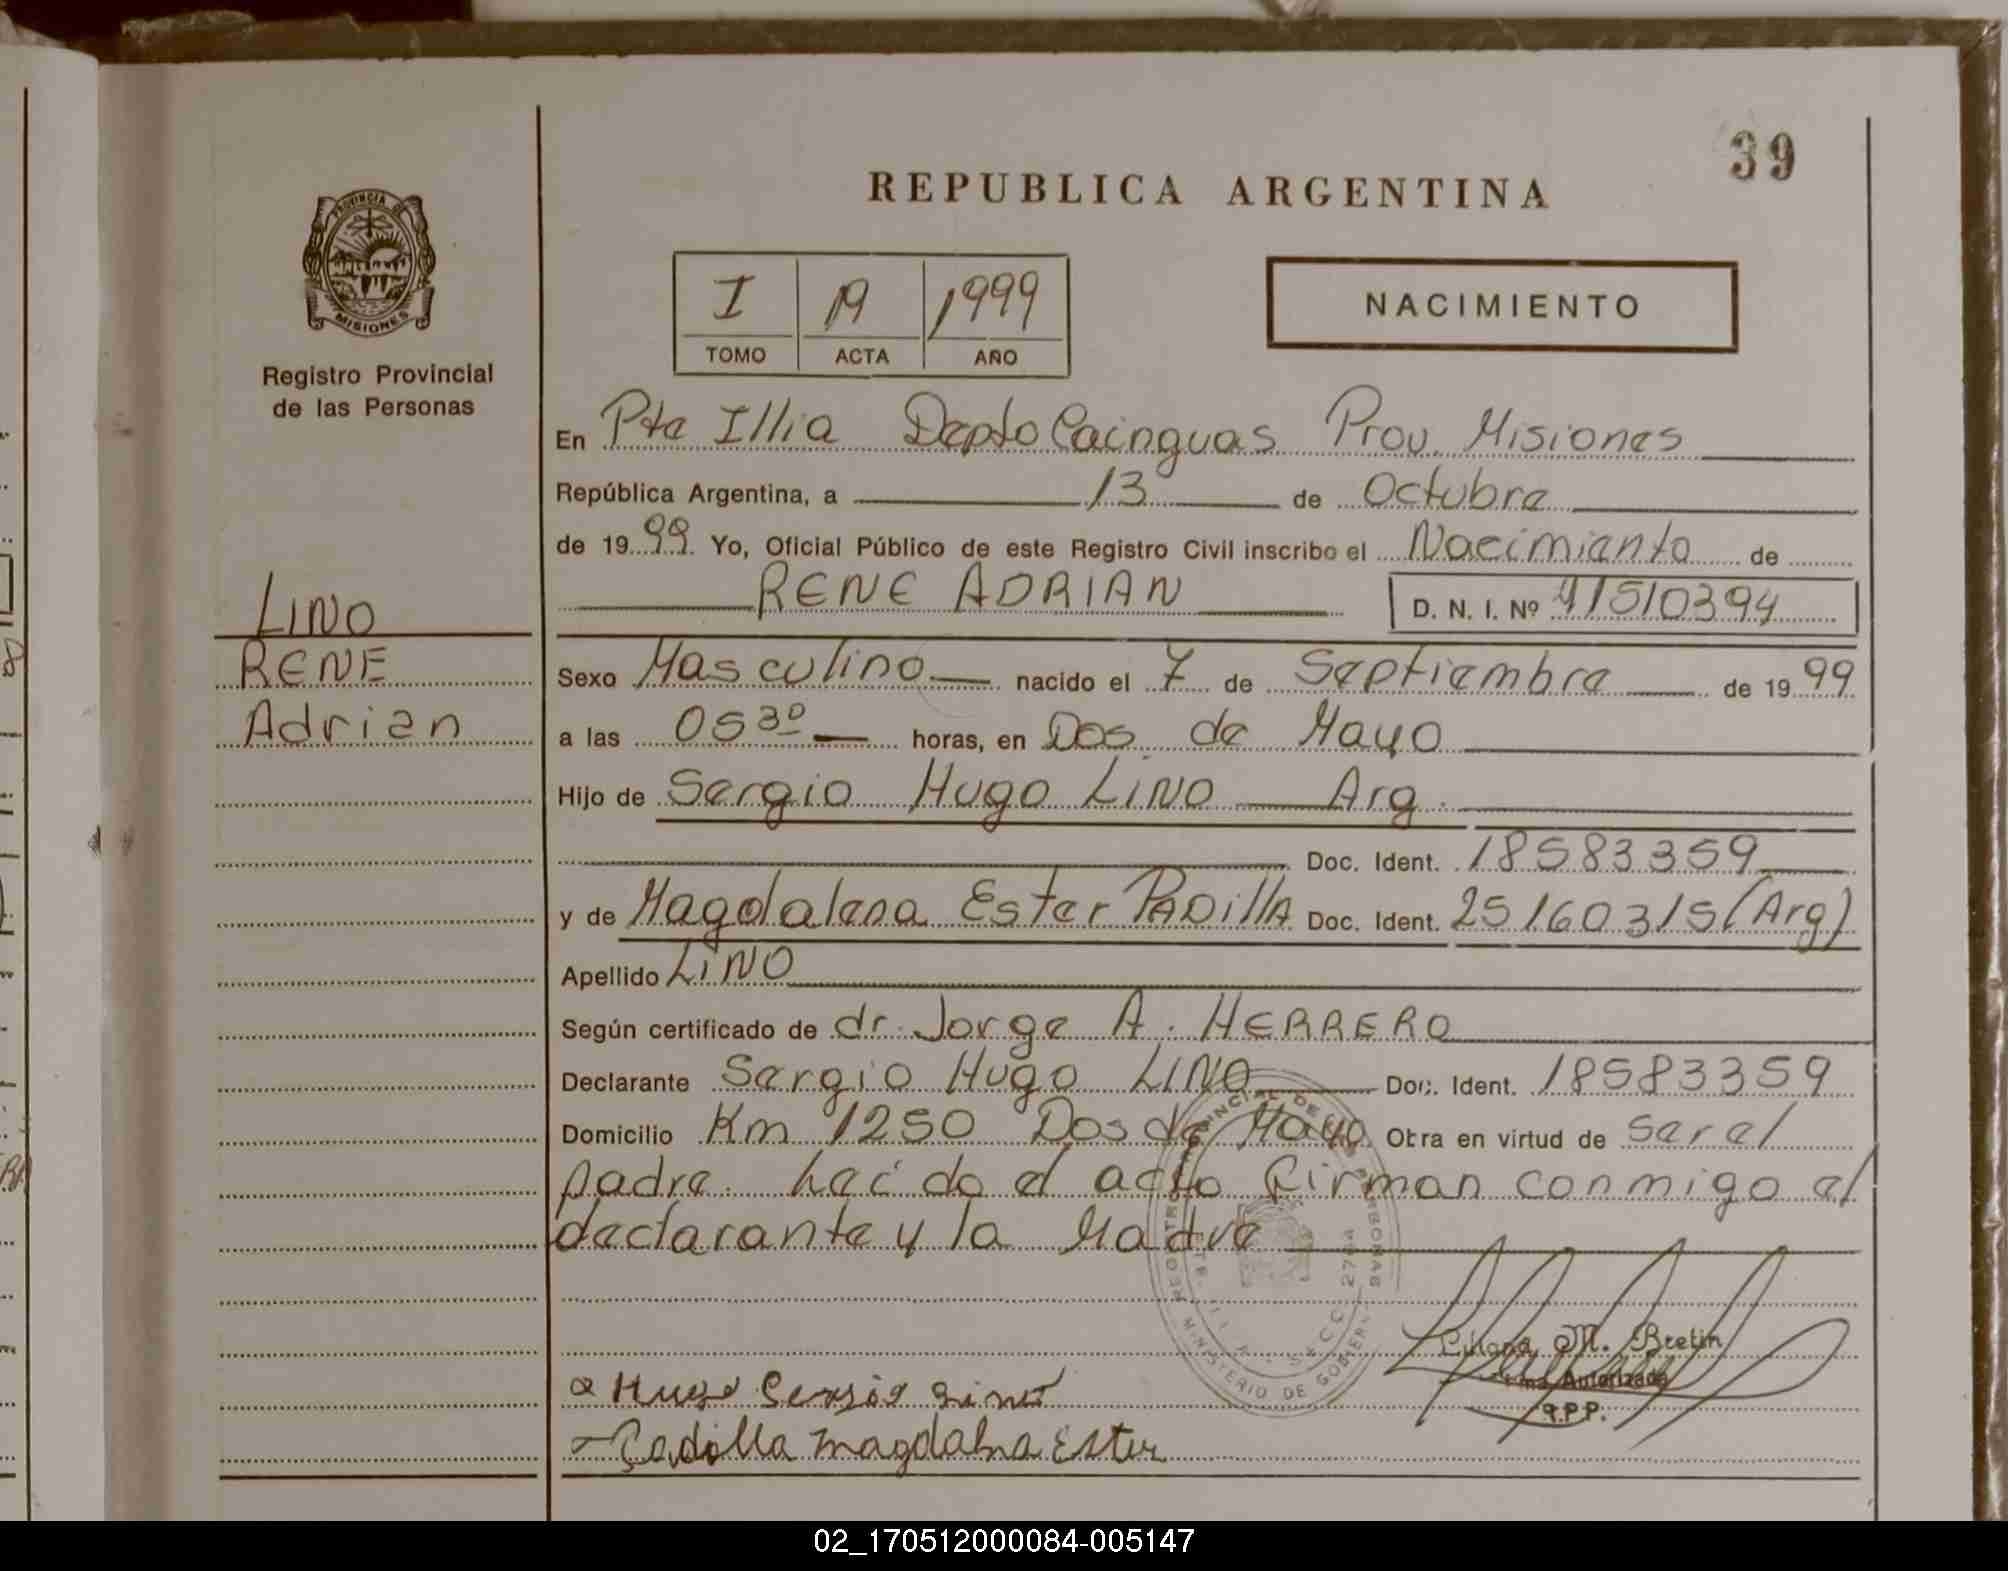 39
REPUBLICA ARGENTINA
PROVINCIA DE
MISIONES
Registro Provincial
de las Personas
I 19 1999
TOMO ACTA AÑO
NACIMIENTO
En Pte Illia Depto Cainguas Prov. Misiones
República Argentina, a 13 de Octubre
de 1999. Yo, Oficial Público de este Registro Civil inscribo el Nacimiento de
RENE ADRIAN D. N. I. Nº 41510394
LINO
RENE
Adrian
Sexo Masculino nacido el 7 de Septiembre de 1999
a las 0530 horas, en Dos de Mayo
Hijo de Sergio Hugo LINO Arg.
Doc. Ident. 18583359
y de Magdalena Ester PADILLA Doc. Ident. 25160315 (Arg)
Apellido LINO
Según certificado de dr. Jorge A. HERRERO
Declarante Sergio Hugo LINO Doc. Ident. 18583359
Domicilio Km 1250 Dos de Mayo Obra en virtud de ser el
padre. Leído el acto firman conmigo el
declarante y la Madre
Liliana M. Bretin
Firma Autorizada
R.P.P.
Hugo Sergio Lino
Padilla Magdalena Ester
02_170512000084-005147